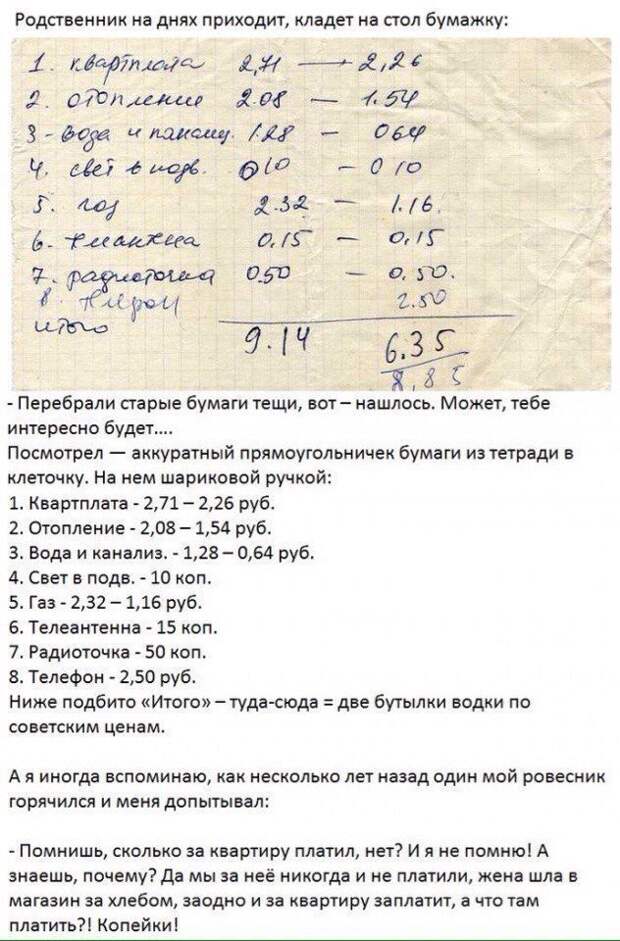 Родственник на днях приходит, кладет на стол бумажку:
1. квартплата 2,71 — 2,26
2. отопление 2.08 — 1.54
3 - вода и канализ. 1.28 — 064
4. свет в подв. 010 — 010
5. газ 2.32 — 1.16.
6. т.антена 0,15 — 0,15
7. радиоточка 0.50 — 0.50.
8. 2.50
итого 9.14 6.35
8,85
- Перебрали старые бумаги тещи, вот – нашлось. Может, тебе
интересно будет....
Посмотрел — аккуратный прямоугольничек бумаги из тетради в
клеточку. На нем шариковой ручкой:
1. Квартплата - 2,71 – 2,26 руб.
2. Отопление - 2,08 – 1,54 руб.
3. Вода и канализ. - 1,28 – 0,64 руб.
4. Свет в подв. - 10 коп.
5. Газ - 2,32 – 1,16 руб.
6. Телеантенна - 15 коп.
7. Радиоточка - 50 коп.
8. Телефон - 2,50 руб.
Ниже подбито «Итого» – туда-сюда = две бутылки водки по
советским ценам.
А я иногда вспоминаю, как несколько лет назад один мой ровесник
горячился и меня допытывал:
- Помнишь, сколько за квартиру платил, нет? И я не помню! А
знаешь, почему? Да мы за неё никогда и не платили, жена шла в
магазин за хлебом, заодно и за квартиру заплатит, а что там
платить?! Копейки!